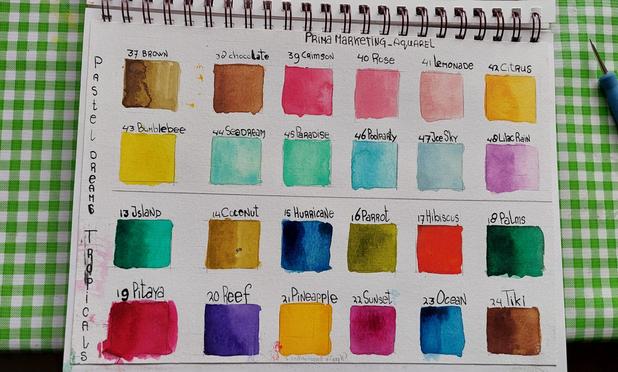 Prima Marketing_Aquarel
Pastel Dreams
37 Brown 38 chocolate 39 Crimson 40 Rose 41 Lemonade 42 Citrus
43 Bumblebee 44 Seadream 45 Paradise 46 Poolparty 47 Ice Sky 48 Lilac Rain
Tropicals
13 Island 14 Coconut 15 Hurricane 16 Parrot 17 Hibiscus 18 Palms
19 Pitaya 20 Reef 21 Pineapple 22 Sunset 23 Ocean 24 Tiki